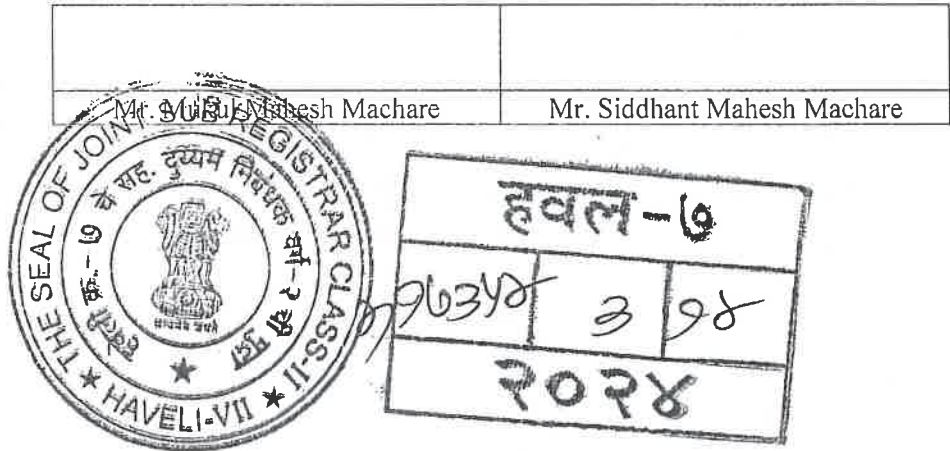 Mr. Mahesh Machare
Mr. Siddhant Mahesh Machare
THE SEAL OF JOINT SUB REGISTRAR CLASS-II
★ HAVELI-VII ★
चे सह. दुय्यम निबंधक वर्ग-२
सत्यमेव जयते
हवल-७
३
१४
२०२४